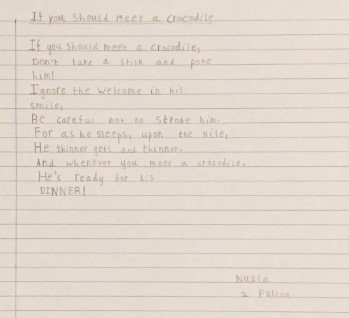 If you should meet a crocodile
If you should meet a crocodile,
Don't take a stick and poke
him!
Ignore the welcome in his
smile,
Be careful not to stroke him.
For as he sleeps upon the Nile,
He thinner gets and thinner.
And whenever you meet a crocodile,
He's ready for his
DINNER!
2 Falcon